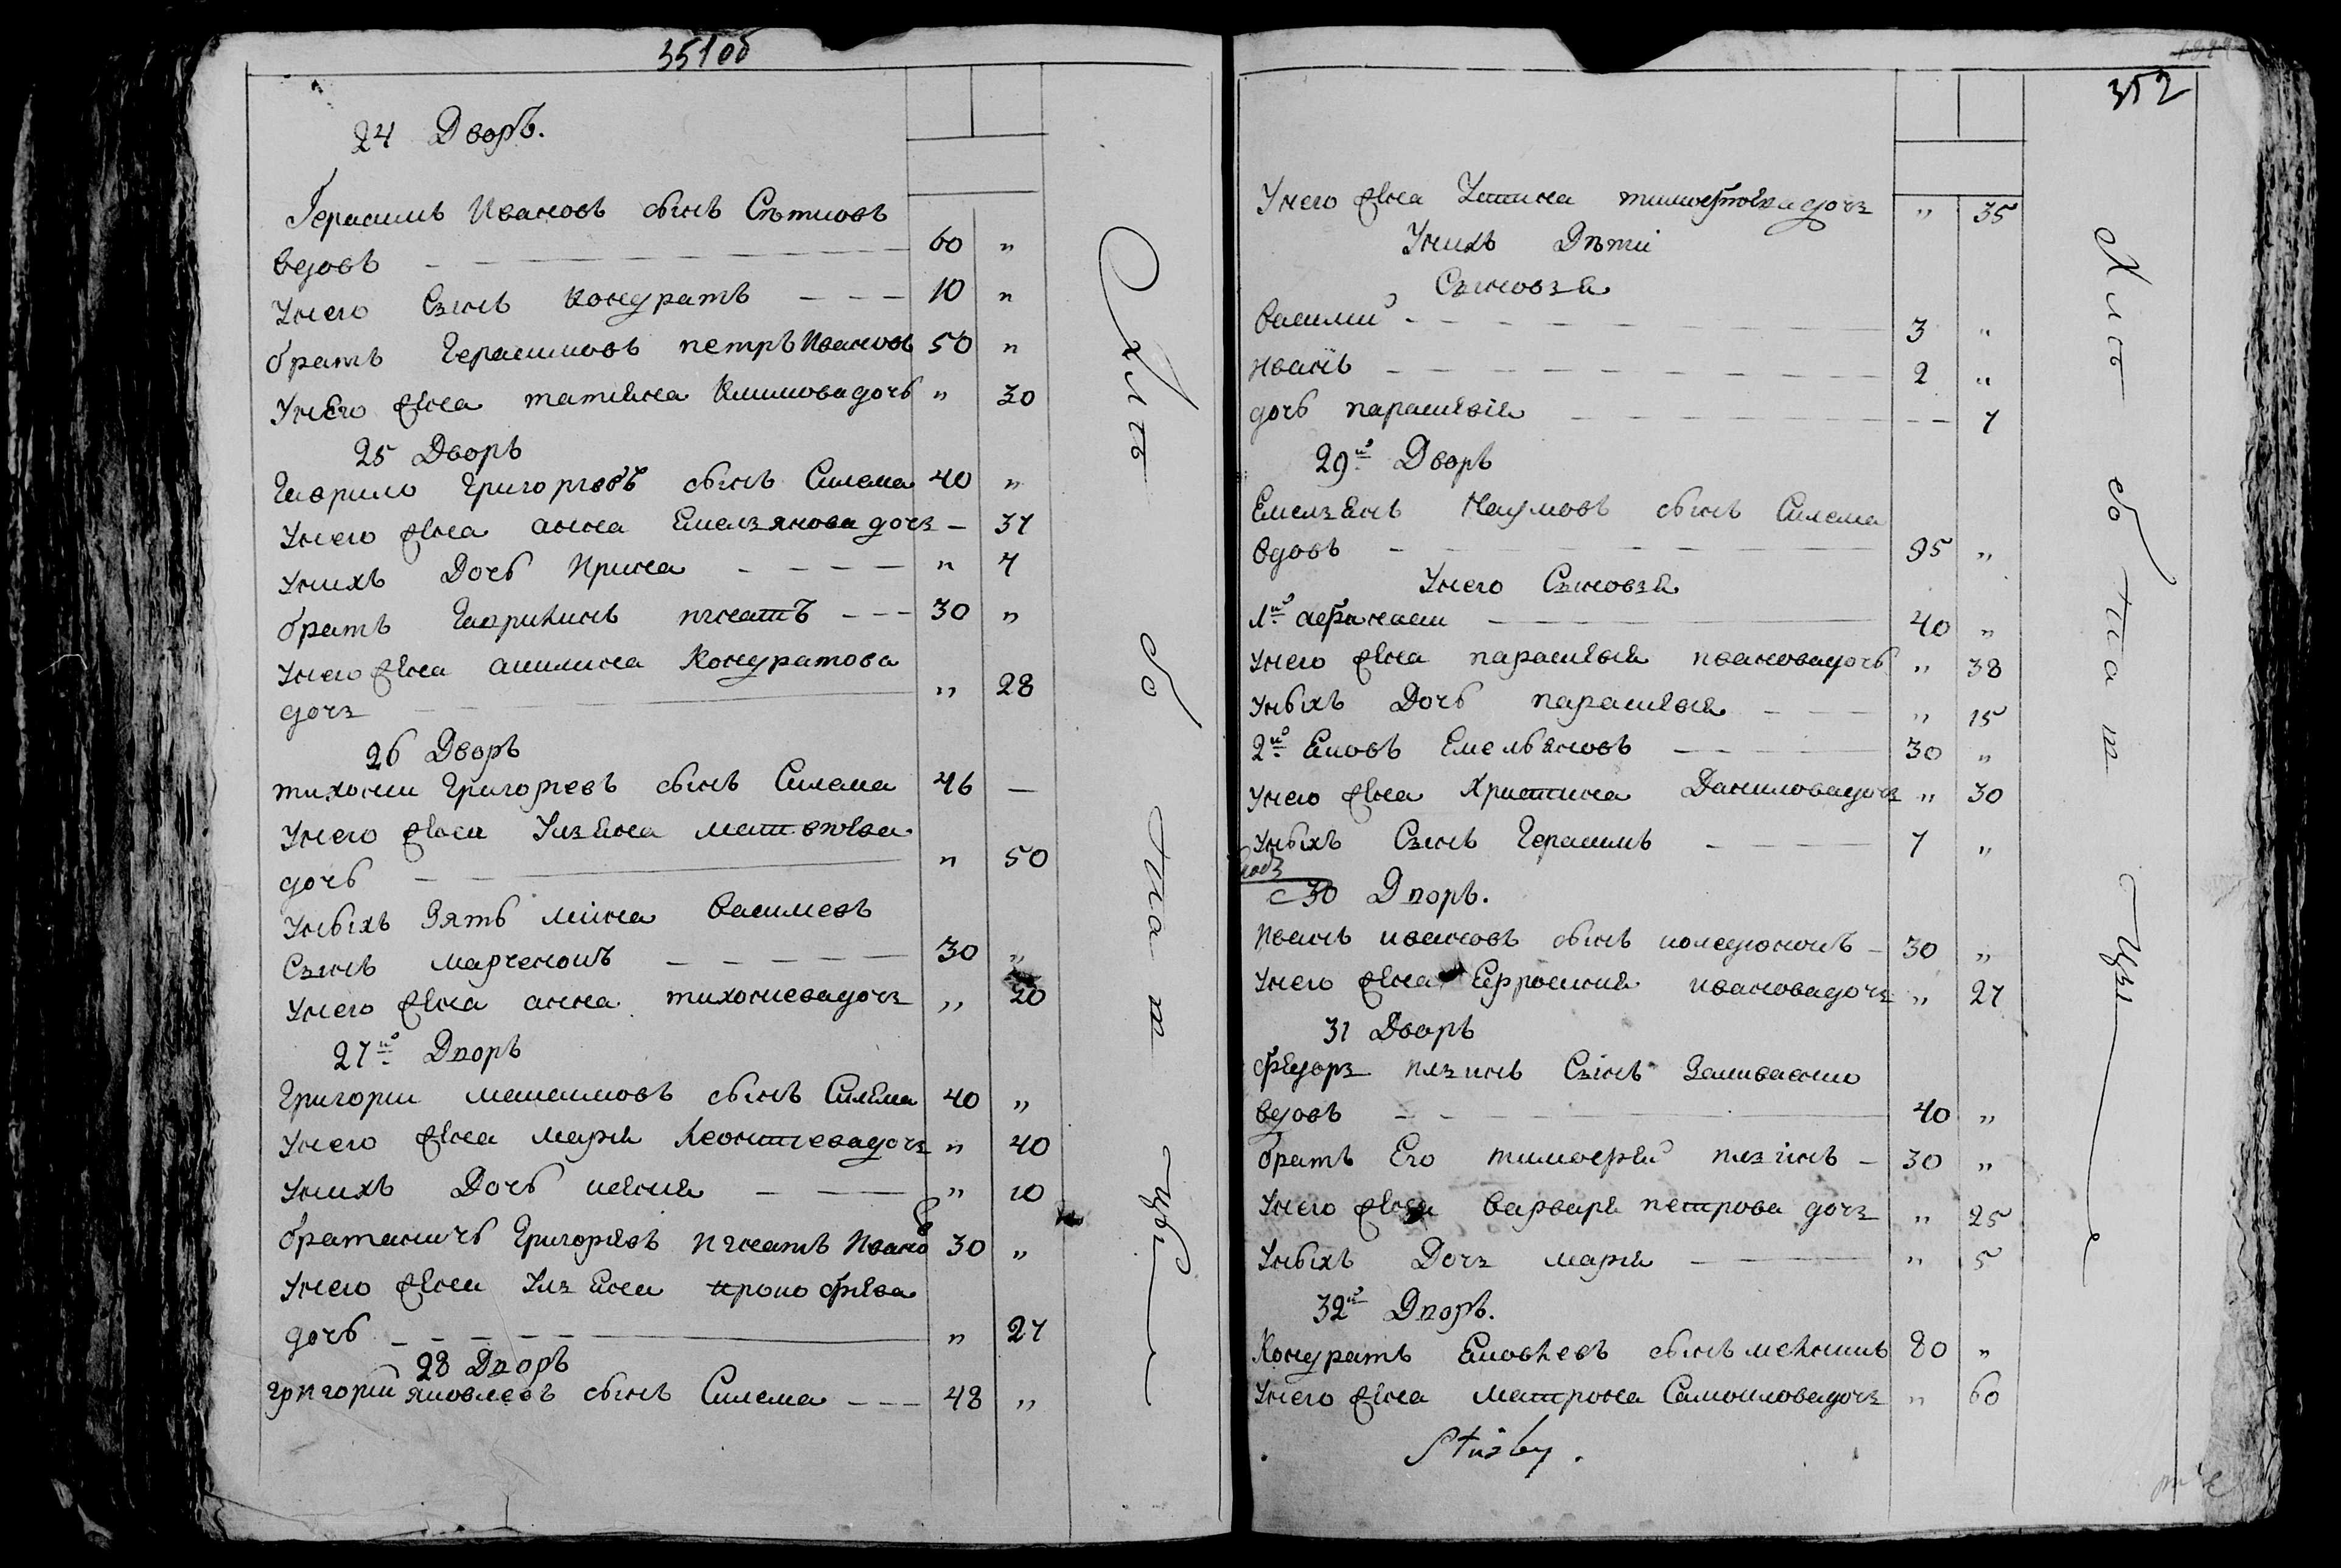 351об
24 Дворъ.
Герасимъ Ивановъ сынъ
вдовъ 60 "
Унего Сзинъ Кондратъ 10 "
братъ Герасимовъ петръ Ивановъ 50 "
Унего жена татияна Климова дочь " 30
25 Дворъ
Гаврило Григориевъ сынъ Силема 40 "
Унего жена анна Емелзянова дочз - 37
Унихъ Дочь Ирина " 7
братъ Гаврилинъ игнатъ 30 "
Унего жена акилина Кондратова
дочз " 28
26 Дворъ
тихонии Григориевъ сынъ Силема 46 —
Унего жена Улзяна матвѣева
дочь " 50
Уныхъ Зять мина Василиевъ
Сзинъ марченокъ 30 "
Унего жена анна тихониева дочз " 20
27й Дворъ
Григории максимовъ сынъ Силема 40 "
Унего жена мария Леонтиева дочз " 40
Унихъ Дочь " 10
братаничь Григориевъ игнатъ Ивановъ 30 "
Унего жена Улзяна прокофиева
дочь " 27
28 Дворъ
григорий яковлевъ сынъ Силема 48 "
352
Унего жена Устина тимофеева дочз " 35
Унихъ Дѣти
Сзиновзя
Василий 3 "
Иванъ 2 "
дочь парасківія - 7
29й Дворъ
Емелзянъ Наумовъ сынъ Силема
вдовъ 95 "
Унего Сзиновзя
1й афанасии 40 "
Унего жена параскивия ивановадочь " 38
Уныхъ Дочь параскивия " 15
2й Емельяновъ 30 "
Унего жена Христина Даниловадочз " 30
Уныхъ Сзинъ Герасимъ 7 "
30 Дворъ.
иванъ ивановъ сынъ 30 "
Унего жена Ефросиния ивановадочз " 27
31 Дворъ
федорз илзинъ Сзинъ
вдовъ 40 "
братъ Его тимофей илзинъ 30 "
Унего жена Варвара петрова дочз " 25
Уныхъ Дочз мария " 5
32й Дворъ.
Кондратъ сынъ 80 "
Унего жена матрона Самоиловадочз " 60